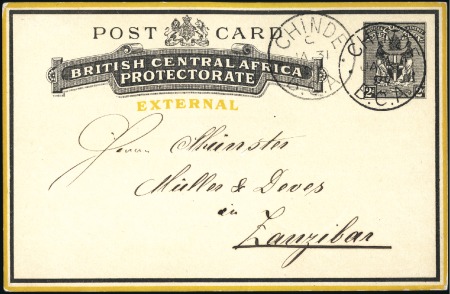 POST CARD
BRITISH CENTRAL AFRICA
PROTECTORATE
EXTERNAL
CHINDE
C
JA 31
B.C.A
B.C.A
Herrn Münster
Müller & Deves
in
Zanzibar